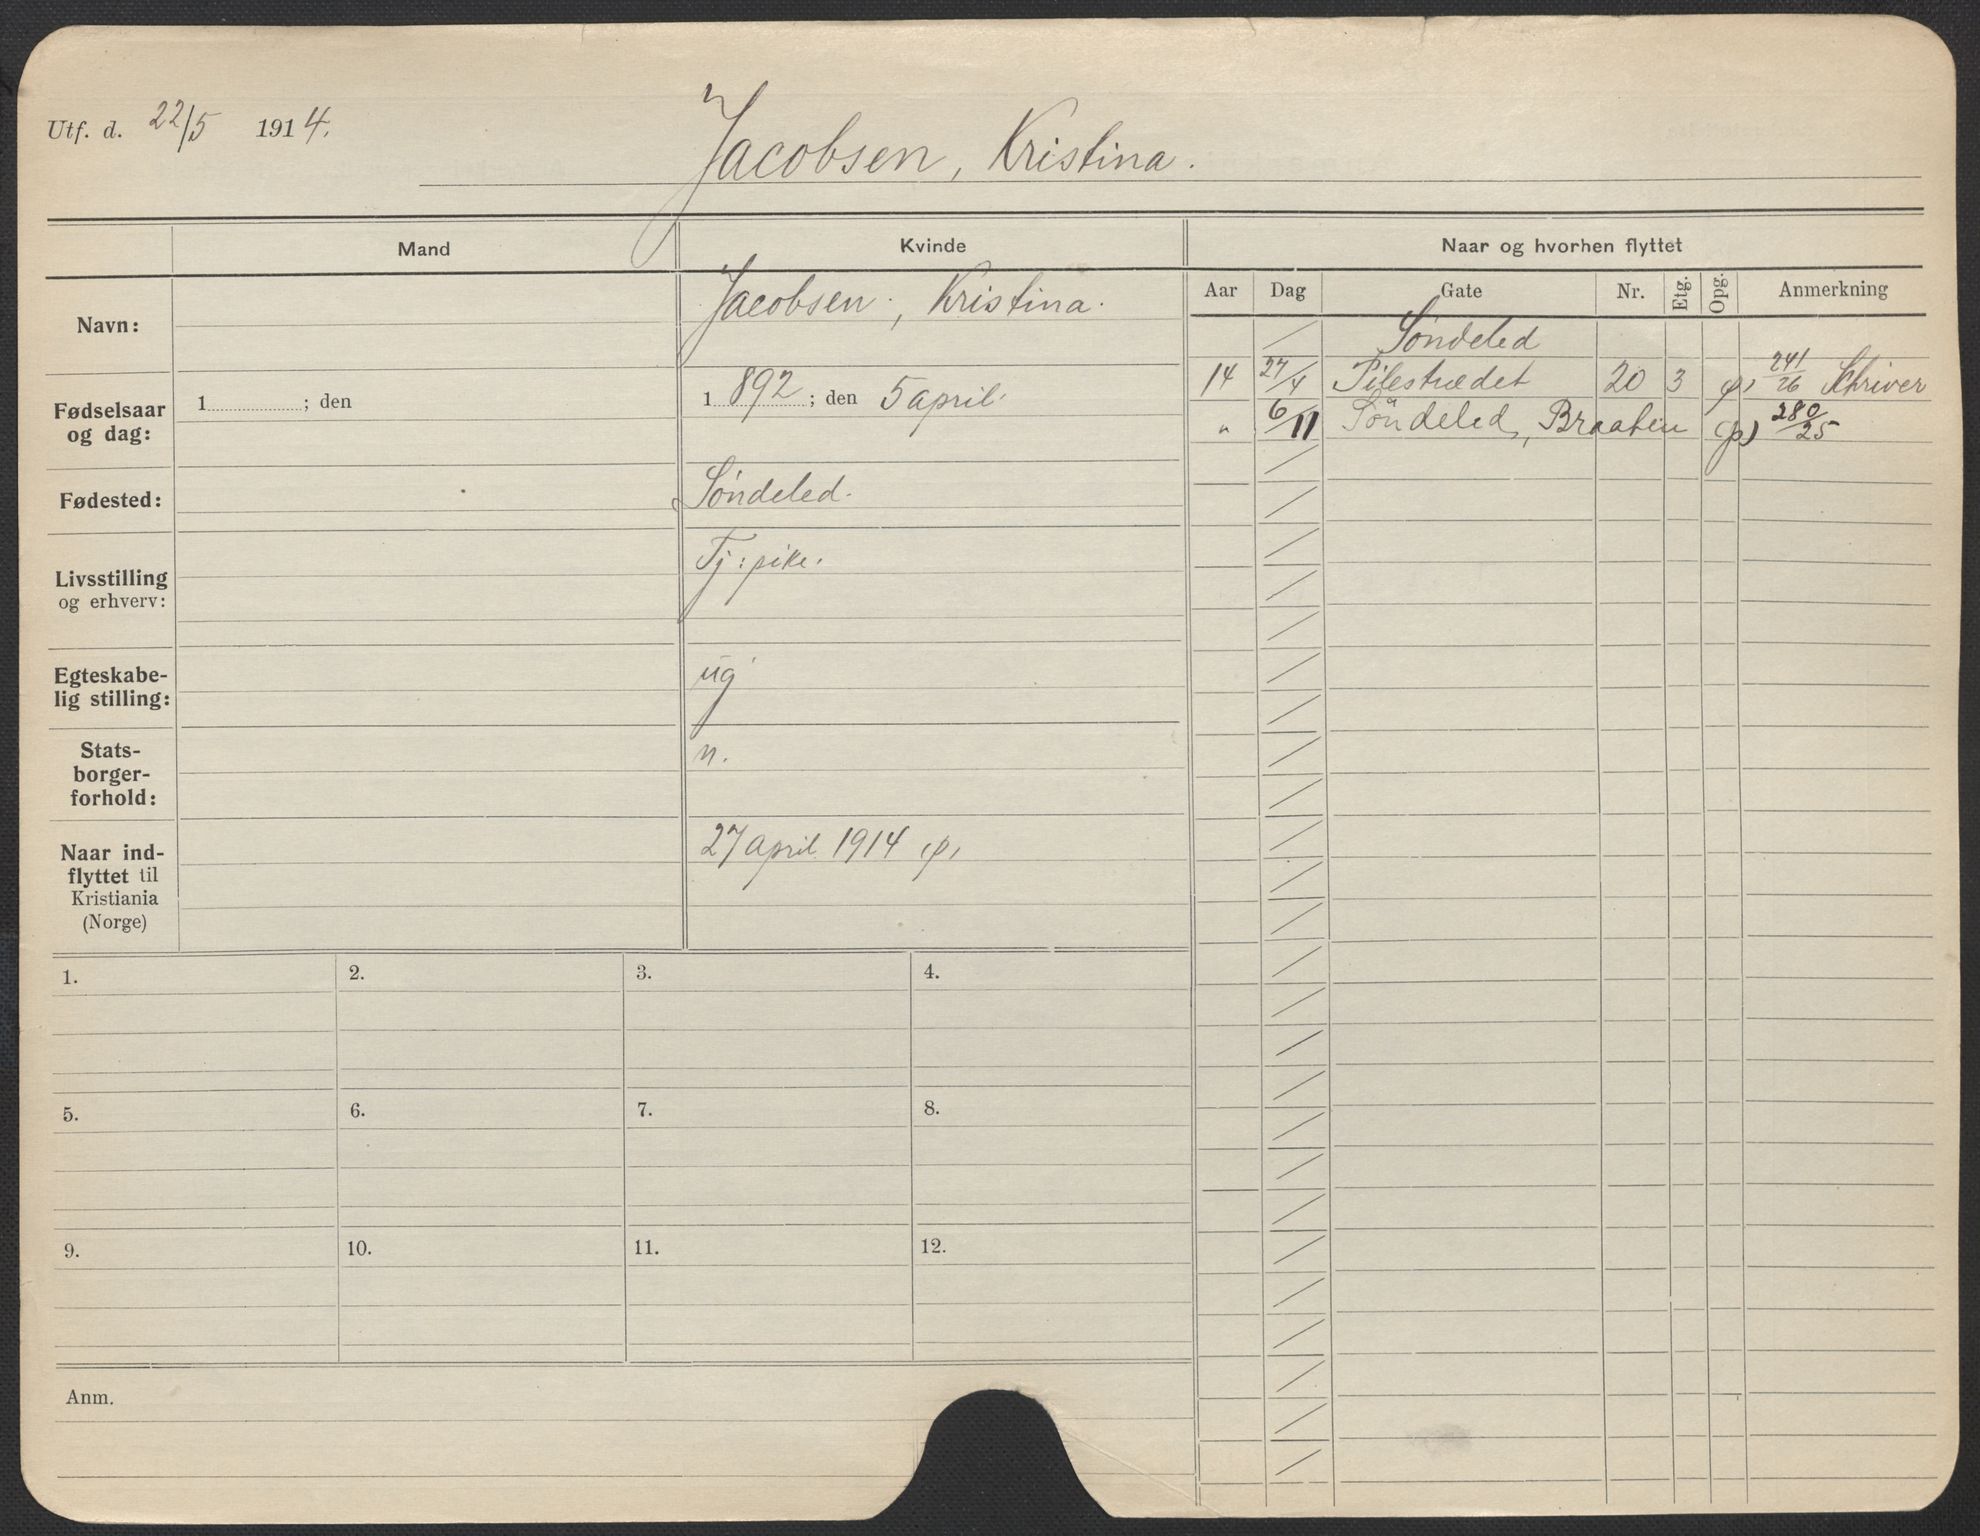 Utf. d. 22/5 1914.
Jacobsen, Kristina.
Mand
Kvinde
Naar og hvorhen flyttet
Aar Dag Gate Nr. Etg. Opg. Anmerkning
Navn:
Jacobsen, Kristina.
Fødselsaar og dag:
1 ; den
1892; den 5 april.
Fødested:
Søndeled.
Livsstilling og erhverv:
Tj: pike.
Egteskabe-
lig stilling:
ug
Stats-
borger-
forhold:
n.
Naar ind-
flyttet til
Kristiania
(Norge)
27 april 1914 (p)
Søndeled
14 27/4 Pilestrædet 20 3 (p) 241/26 Schriver
" 6/11 Søndeled, Braaten (p) 280/25
1. 2. 3. 4.
5. 6. 7. 8.
9. 10. 11. 12.
Anm.